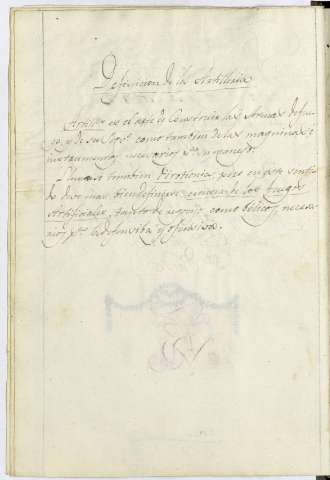 Definicion de la Artilleria
Artill.ª es el arte de construir las Armas de fue-
go, y de su servi.º como tambien de las maquinas, è
instrumentos necesarios p.ª su manejo.
Llamase tambien Pirotecnia; pero en este
se dice mas bien ciencia de los fuegos
Artificiales, tanto de como belicos, necesa-
rios p.ª la defensiba y ofensiba.